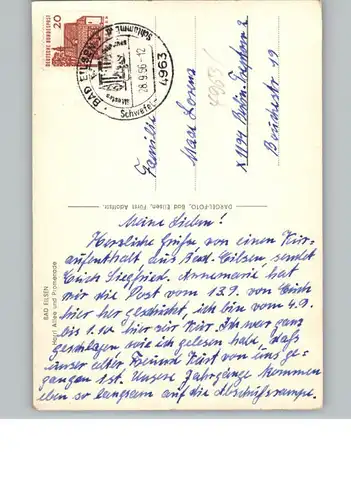 20
DEUTSCHE BUNDESPOST
BAD EILSEN
Schlamm
Schwefel-
28.9.66-12
4963
Familie
Max Lorenz
X 1194 Berlin-Treptow 2
Bouchestr 12
DARGEL-FOTO, Bad Eilsen, Fürst Adolfstr.
BAD EILSEN
Harrl Allee und Promenade
Meine Lieben!
Herzliche Grüße von einen Kur-
aufenthalt aus Bad-Eilsen, sendet
Euch Siegfried. Annemarie hat
mir die Post vom 13.9. von Euch
her geschickt, ich bin vom 4.9.
bis 1.10. hier zur Kur. Ich war ganz
geschlagen wie ich gelesen habe, daß
unser alter Freund Kurt von uns ge-
gangen ist. Unsere Jahrgänge kommen
eben so langsam auf die Abschußrampe.